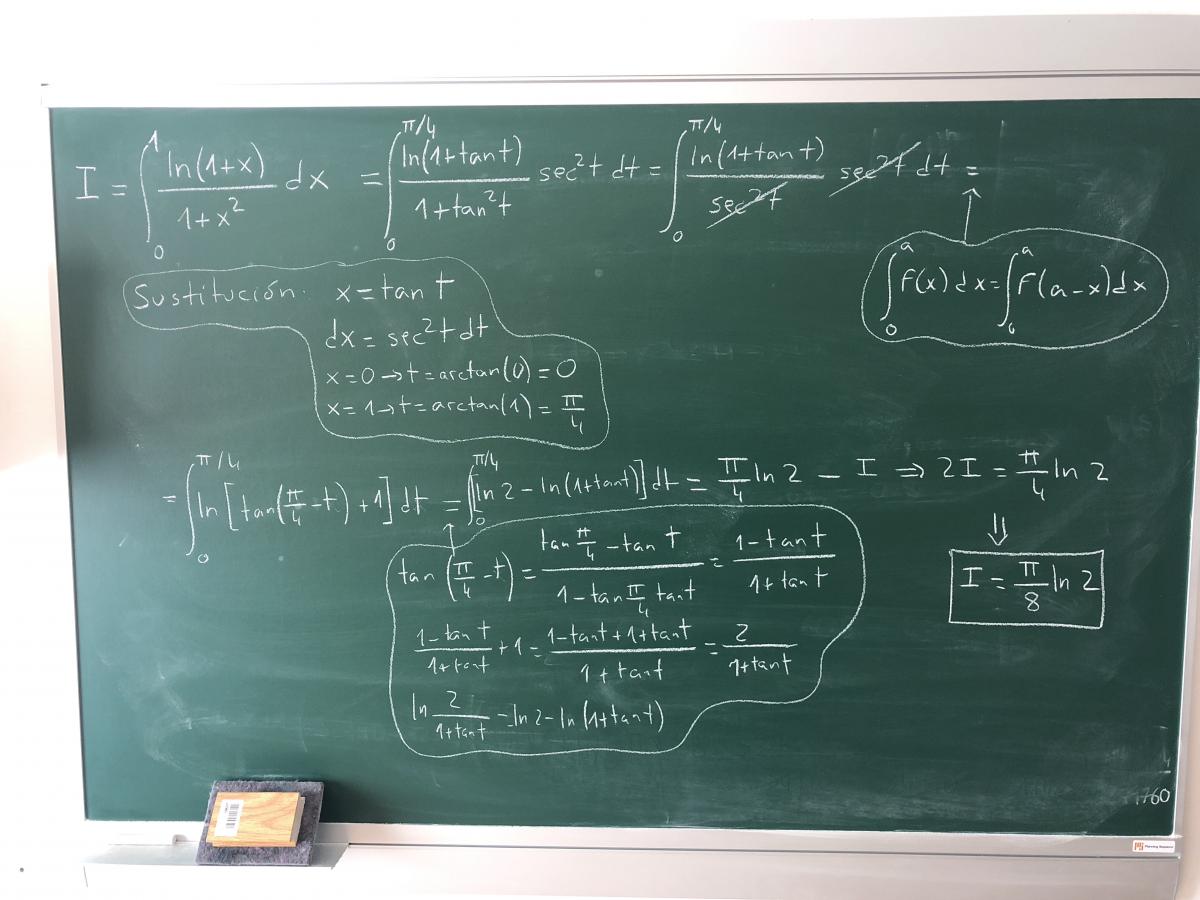 I = ∫₀¹ ln(1+x)/(1+x²) dx = ∫₀^(π/4) ln(1+tan t)/(1+tan²t) sec²t dt = ∫₀^(π/4) ln(1+tan t)/sec²t sec²t dt =
∫₀^a f(x) dx = ∫₀^a f(a-x) dx
Sustitución: x = tan t
dx = sec²t dt
x=0 → t=arctan(0) = 0
x=1 → t=arctan(1) = π/4
= ∫₀^(π/4) ln[tan(π/4 - t) + 1] dt = ∫₀^(π/4) [ln 2 - ln(1+tant)] dt = π/4 ln 2 - I ⇒ 2I = π/4 ln 2
⇓
I = π/8 ln 2
tan(π/4 - t) = (tan π/4 - tan t)/(1 - tan π/4 tant) = (1-tan t)/(1+tan t)
(1-tan t)/(1+tant) + 1 = (1-tant+1+tant)/(1+tant) = 2/(1+tant)
ln 2/(1+tant) = ln 2 - ln(1+tant)